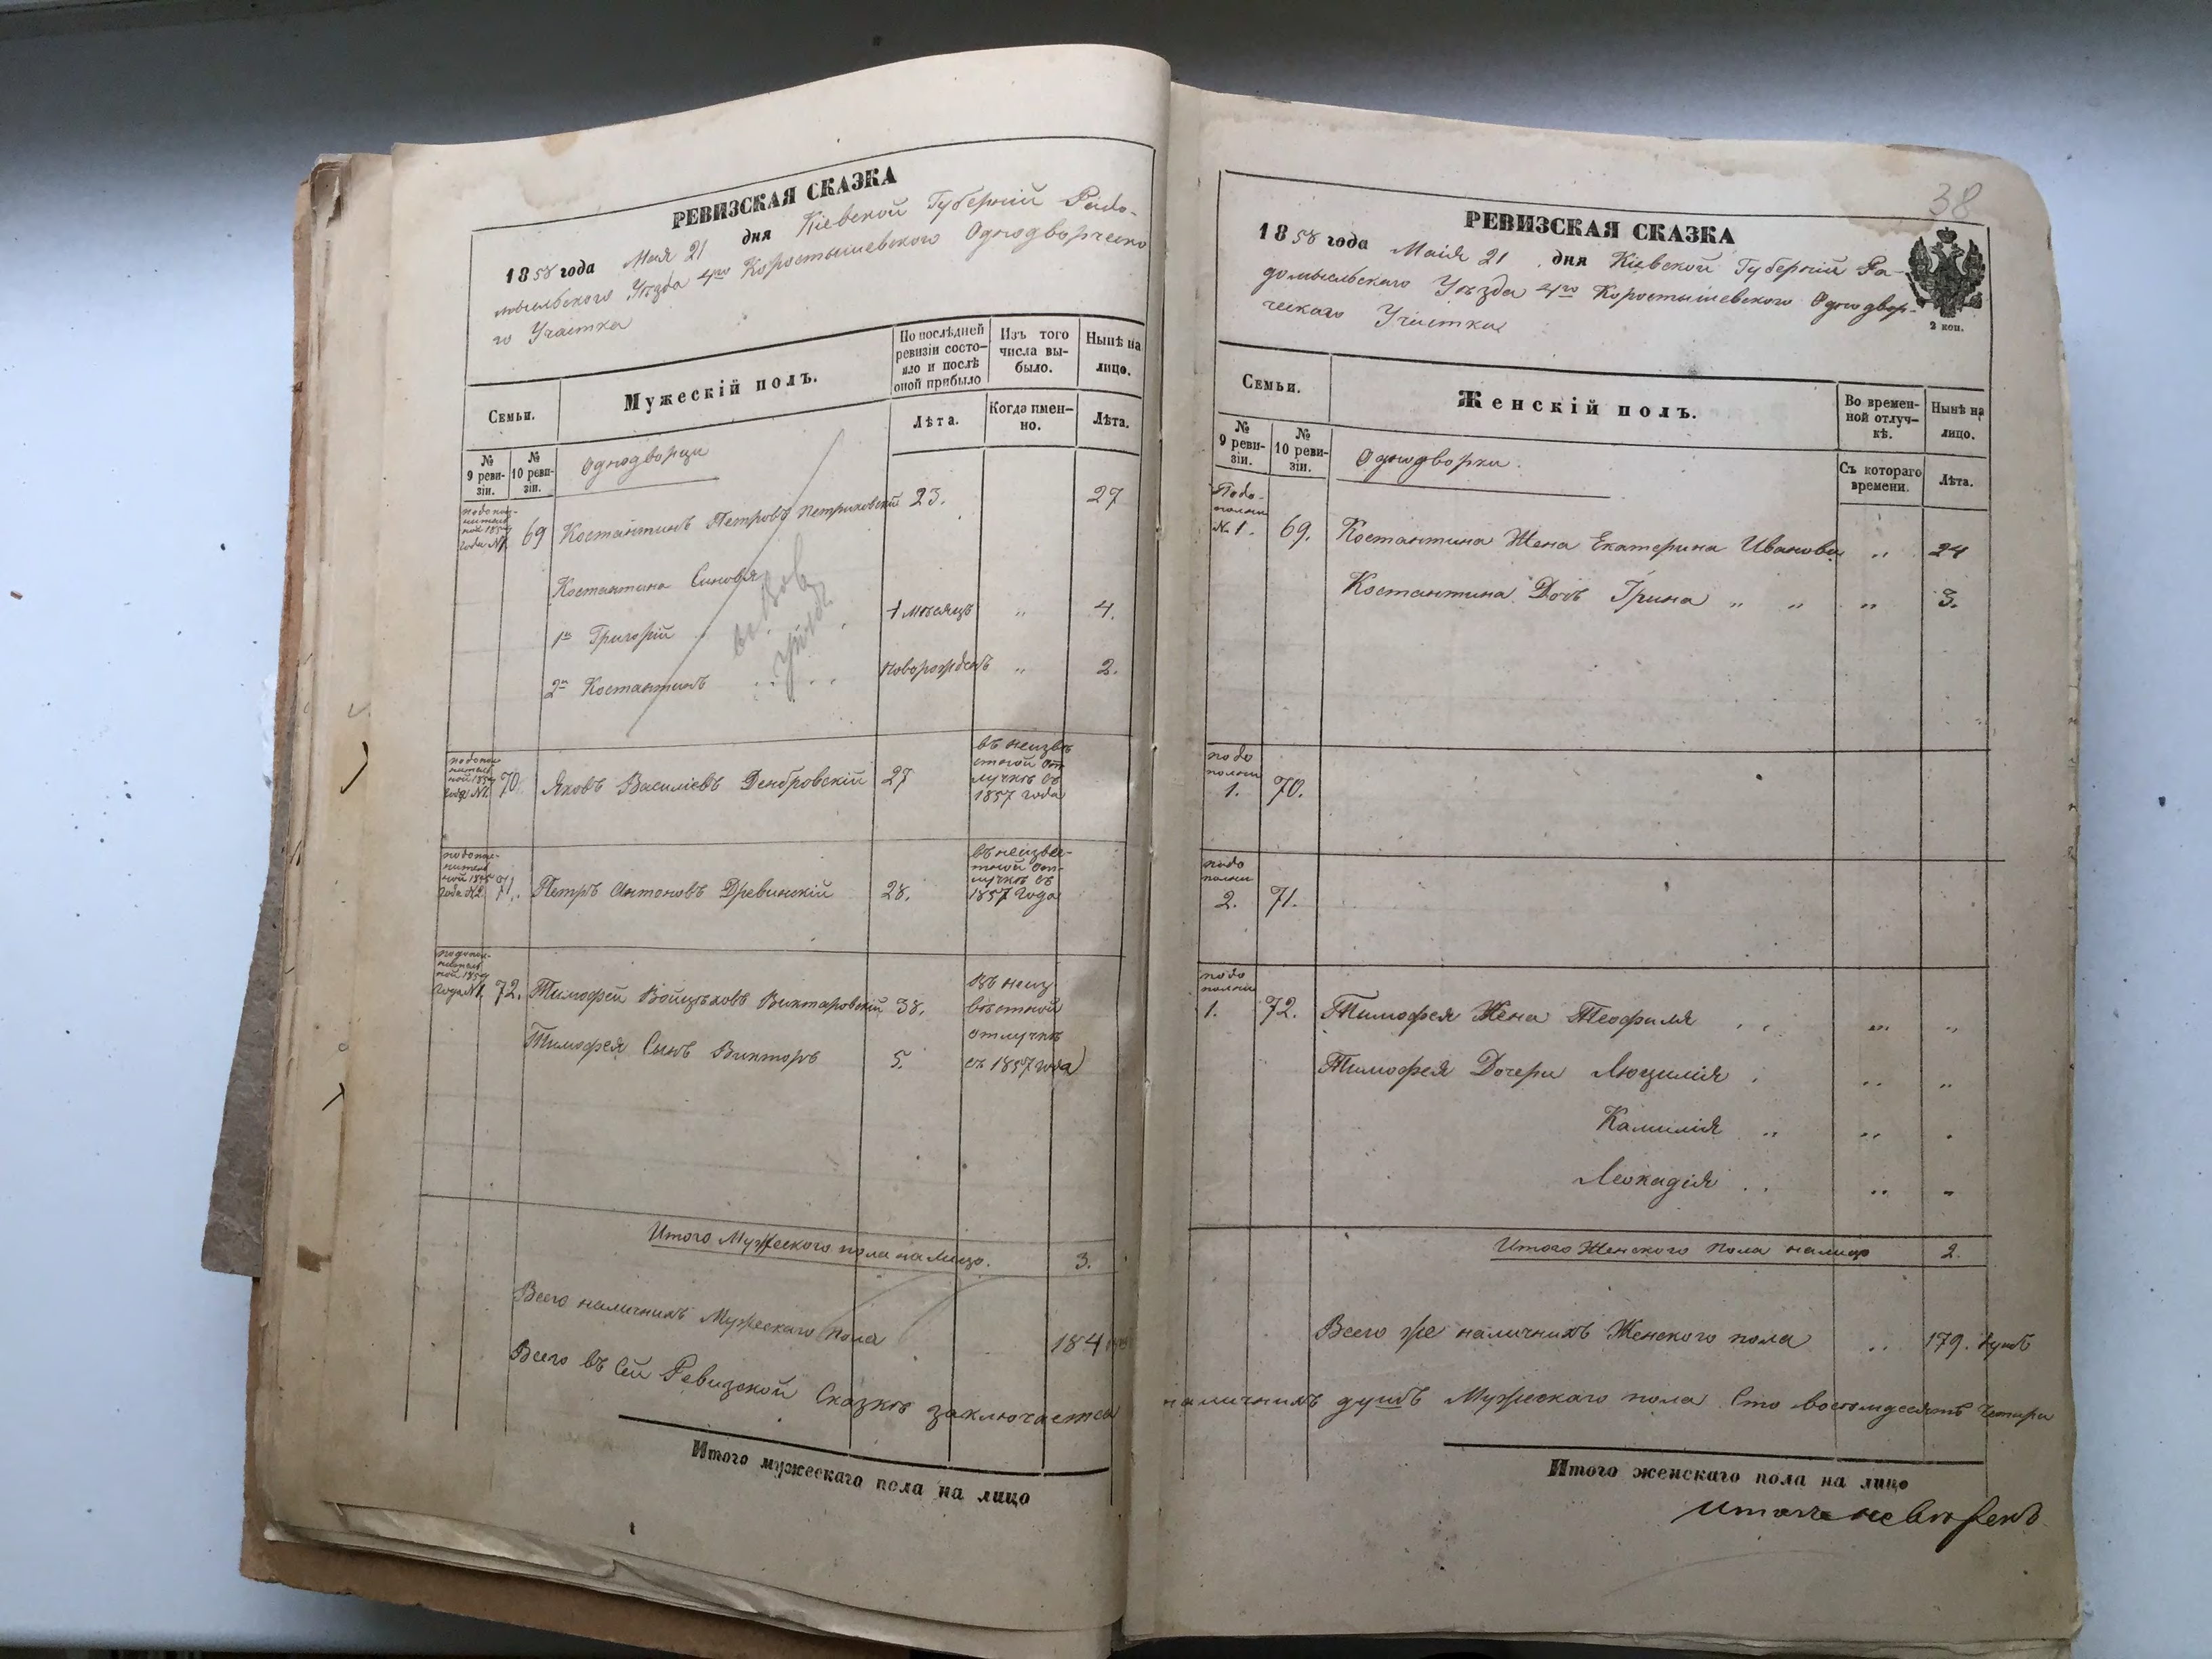 РЕВИЗСКАЯ СКАЗКА
1858 года Мая 21 дня Кіевской Губерніи Радо-
мысльского Уѣзда 4го Коростышевского Однодворческо
го Участка
Семьи.
Мужескій полъ.
По послѣдней ревизіи состо-яло и послѣ оной прибыло
Изъ того числа вы-было.
Нынѣ на лицо.
Лѣта.
Когда имен-но.
Лѣта.
№ 9 реви-зіи.
№ 10 реви-зіи.
Однодворци
69 Костантинъ Петровъ Петриковскій 23. 27
Костантина Синовья
1й Григорій 1 мѣсяцъ „ 4.
2й Костантинъ новорожденъ „ 2.
70. Яковъ Василіевъ Дембровскій 27
въ неизвѣ
стной от
лучкѣ съ
1857 года
71. Петръ Антоновъ Древинскій 28.
въ неизвѣс-
тной от-
лучкѣ съ
1857 года
72. Тимофей Войцѣховъ Викторовскій 38.
Въ неиз
вѣстной
отлучкѣ
съ 1857 года
Тимофея Сынъ Викторъ 5.
Итого Мужеского пола на Лицо. 3.
Всего наличнихъ Мужескаго пола 184
Всего въ Сей Ревизской Сказкѣ заключается
Итого мужескаго пола на лицо
38
РЕВИЗСКАЯ СКАЗКА
1858 года Маія 21 дня Кіевской Губерніи Ра-
домысльскаго Уѣзда 4го Коростышевского Однодвор-
ческаго Участка
2 коп.
Семьи.
Женскій полъ.
Во времен-ной отлуч-кѣ.
Нынѣ на лицо.
№ 9 реви-зіи.
№ 10 реви-зіи.
Съ котораго времени.
Лѣта.
Однодворки.
№ 1. 69. Костантина Жена Екатерина Иванова „ 24
Костантина Дочъ Ірина „ „ „ 3.
1. 70.
2. 71.
1. 72. Тимофея Жена Теофиля „ „
Тимофея Дочери Люцилія „ „
Камилія „ „
Леокадія „ „
Итого Женского Пола налицо 2.
Всего же наличнихъ Женского пола „ 179. душъ
наличнихъ душъ Мужескаго пола Сто восемдесятъ Четыри
Итого женскаго пола на лицо